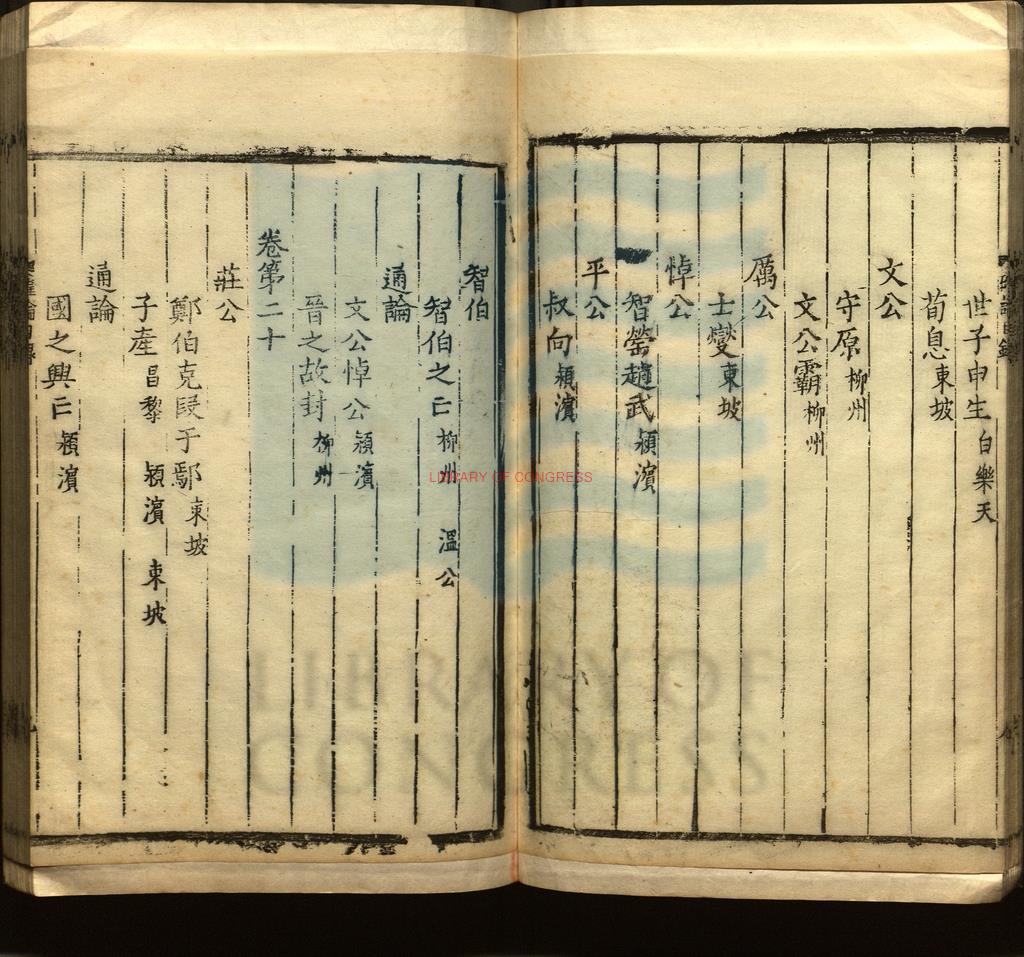 世子申生白樂天
荀息東坡
文公
守原柳州
文公霸柳州
厲公
士燮東坡
悼公
智罃趙武潁濱
平公
叔向潁濱
智伯
智伯之亡柳州 溫公
通論
文公悼公潁濱
晉之故封柳州
卷第二十
莊公
鄭伯克段于鄢東坡
子產昌黎 潁濱 東坡
通論
國之興亡潁濱
LIBRARY OF CONGRESS
LIBRARY OF
CONGRESS